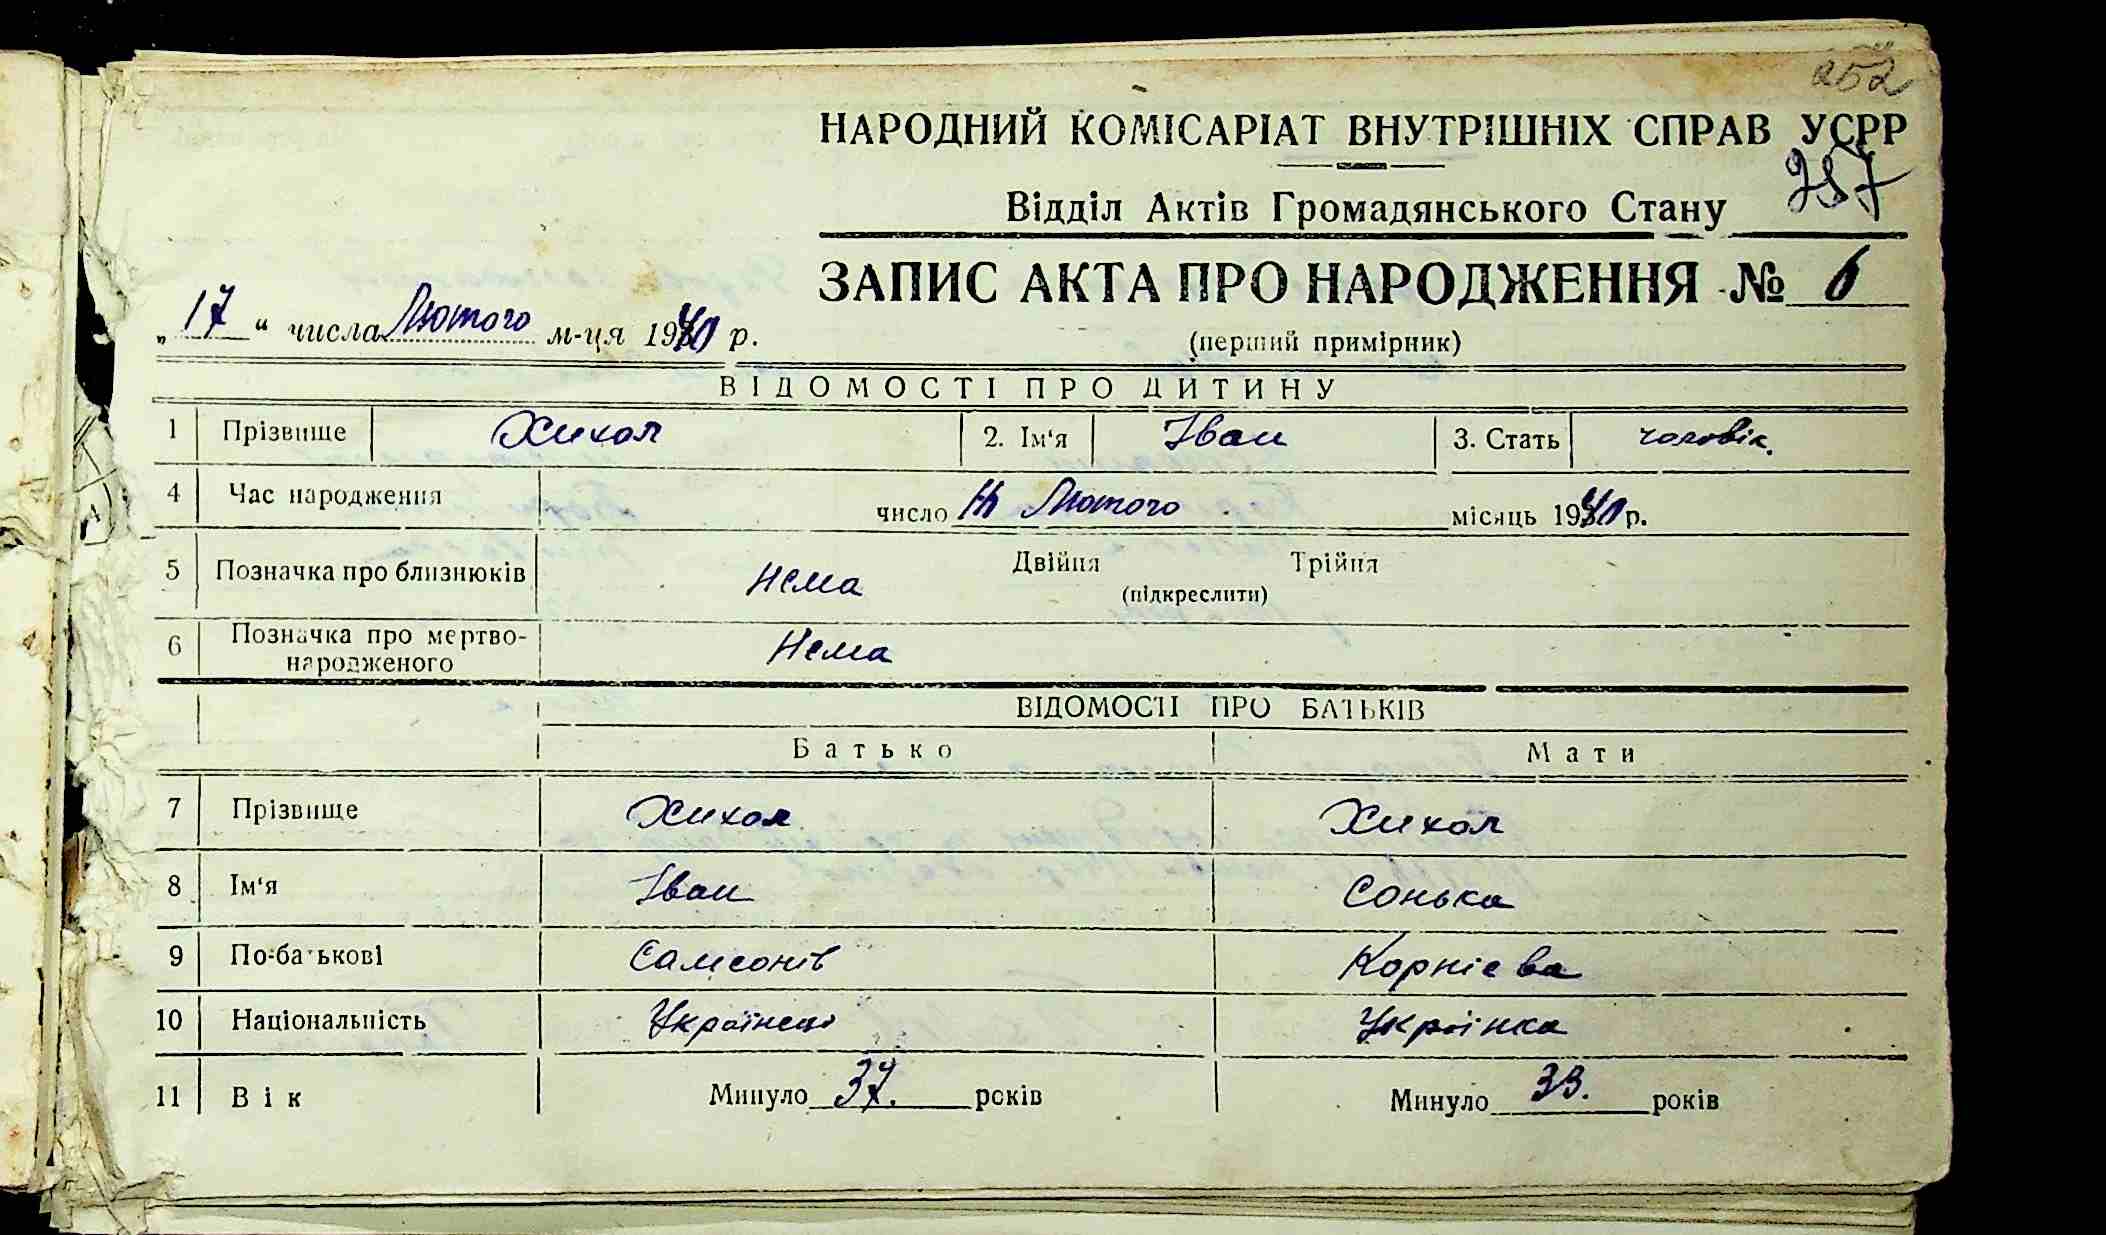 252
НАРОДНИЙ КОМІСАРІАТ ВНУТРІШНІХ СПРАВ УСРР
257
Відділ Актів Громадянського Стану
ЗАПИС АКТА ПРО НАРОДЖЕННЯ № 6
„17“ числа Лютого м-ця 1940 р.
(перший примірник)
ВІДОМОСТІ ПРО ДИТИНУ
1 Прізвище Хихол 2. Ім‘я Іван 3. Стать чоловік.
4 Час народження число Лютого місяць 1940 р.
5 Позначка про близнюків Нема Двійня Трійня
(підкреслити)
6 Позначка про мертво-
народженого Нема
ВІДОМОСТІ ПРО БАТЬКІВ
Батько Мати
7 Прізвище Хихол Хихол
8 Ім‘я Іван Сонька
9 По-батькові Самсонів Корнієва
10 Національність Українець Укрїнка
11 Вік Минуло 37. років Минуло 33. років